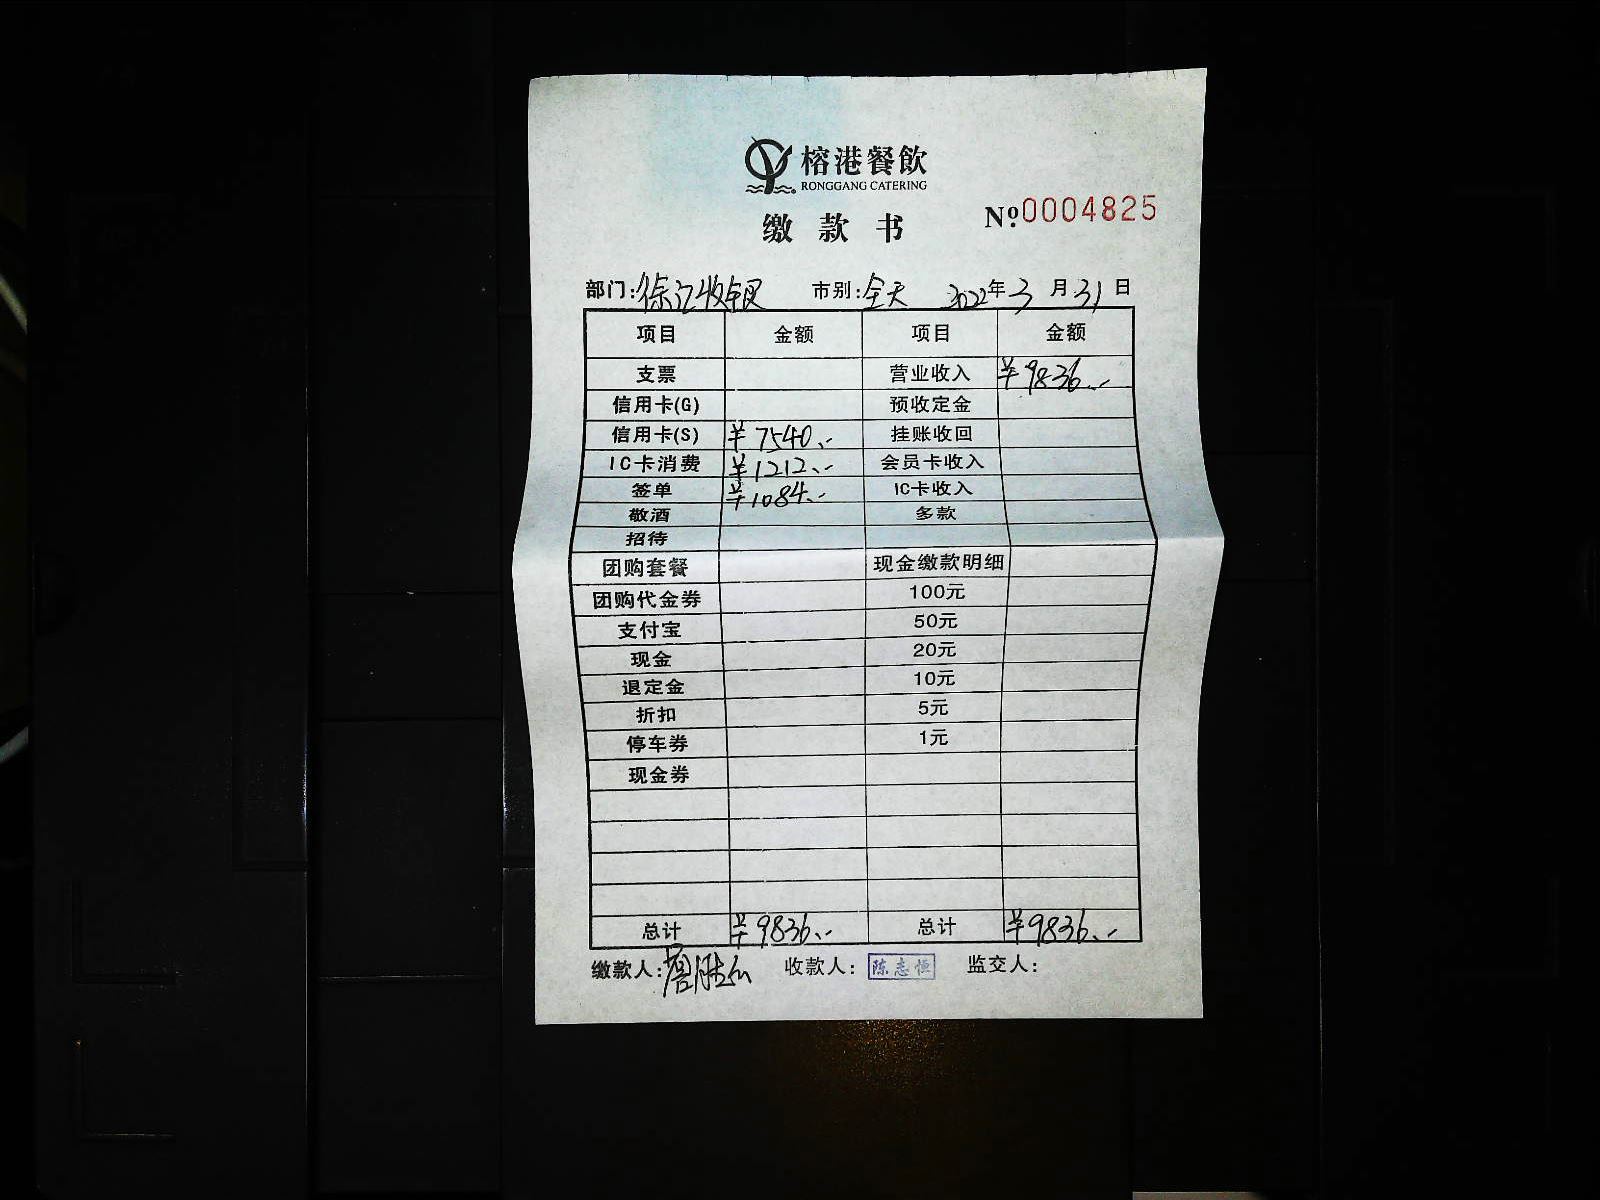 榕港餐飲
RONGGANG CATERING
缴款书
Nº.0004825
部门:徐汇收银 市别:全天 2022年3月31日
项目 金额 项目 金额
支票 营业收入 ¥9836.-
信用卡(G) 预收定金
信用卡(S) ¥7540.- 挂账收回
IC卡消费 ¥1212.- 会员卡收入
签单 ¥1084.- IC卡收入
敬酒 多款
招待
团购套餐 现金缴款明细
团购代金券 100元
支付宝 50元
现金 20元
退定金 10元
折扣 5元
停车券 1元
现金券
总计 ¥9836.- 总计 ¥9836.-
缴款人: 收款人:陈志恒 监交人: